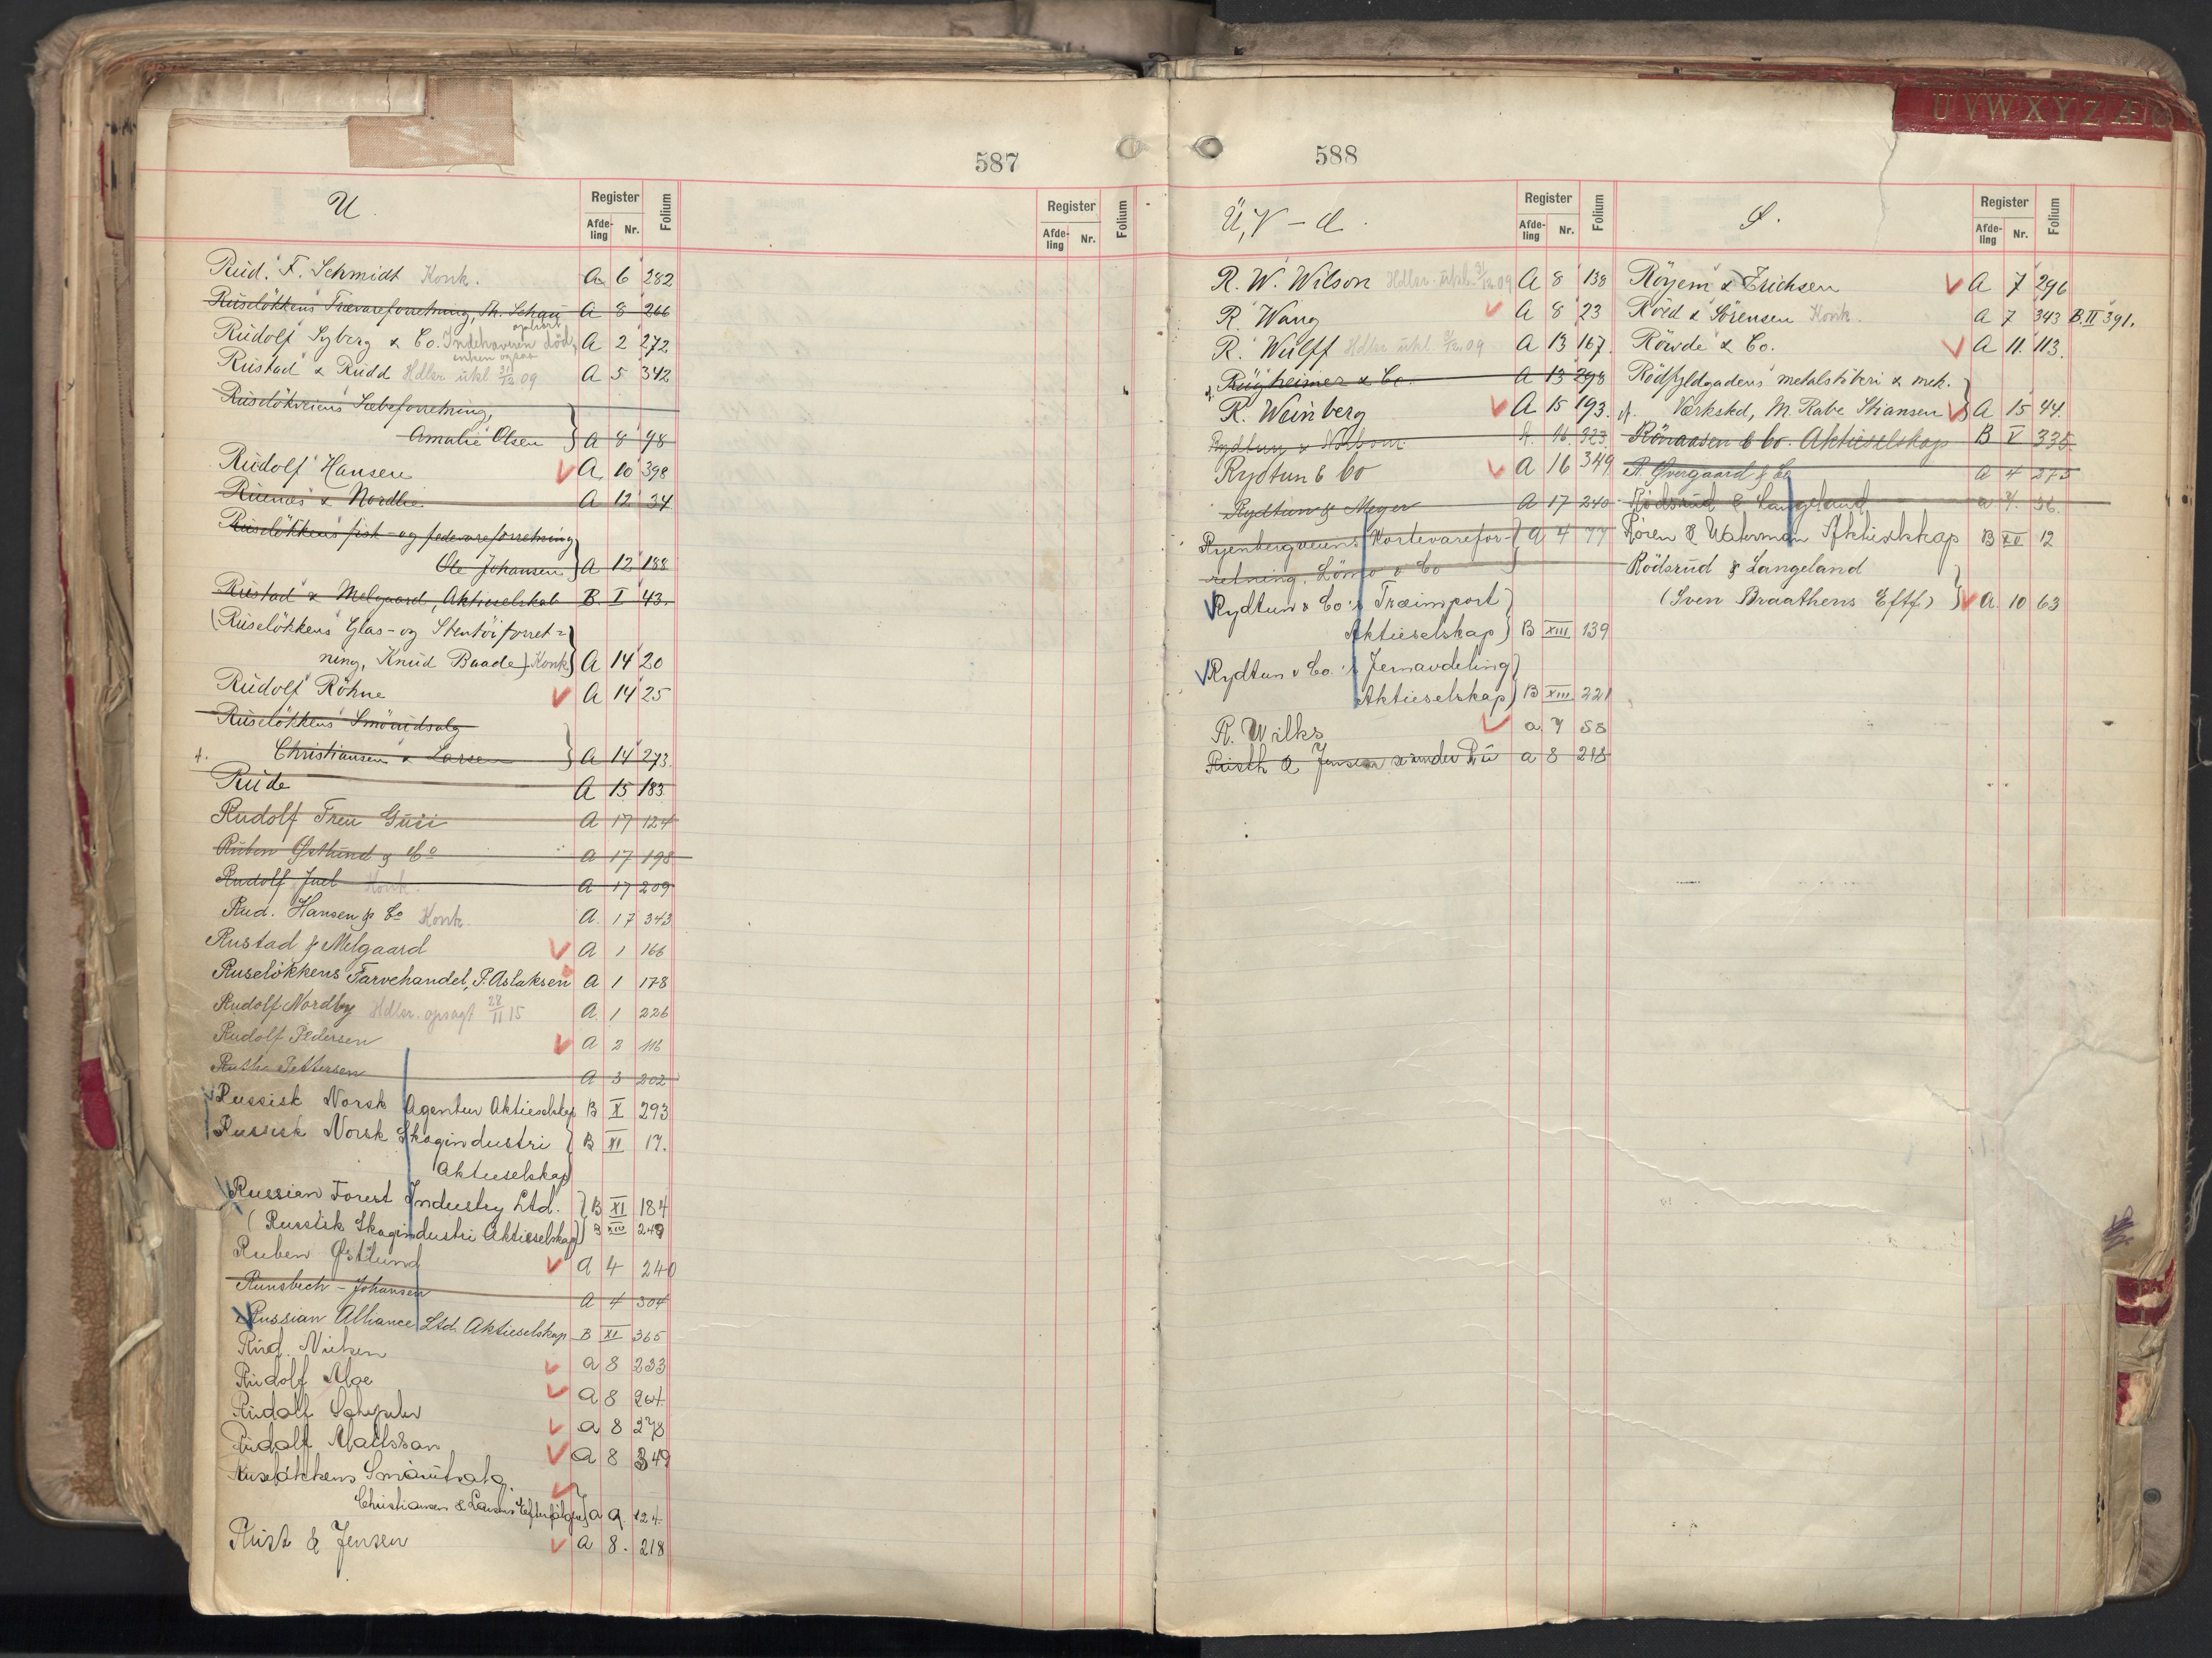 587
U.
Register
Afde-
ling
Nr.
Folium
Register
Afde-
ling
Nr.
Folium
Rud. F. Schmidt Konk. A 6 282
Ruseløkkens Trævareforretning, Th. Schau A 8 266
ophørt
Rudolf Syberg & Co. Indehaveren død, A 2 272
enken ogsaa
Rustad & Rudd Hdlsr. ukl 31/12 09 A 5 342
Ruseløkveiens Sæbeforretning,
Amalie Olsen } A 8 98
Rudolf Hansen A 10 398
& Nordlie A 12 34
Ruseløkkens fisk- og fedevareforretning
Ole Johansen } A 12 188
Rustad & Melgaard, Aktieselskab B. I 43.
(Ruseløkkens Glas- og Stentøiforret=
ning, Knud Baade) Konk } A 14 20
Rudolf Röhne A 14 25
Ruseløkkens Smørudsalg
+. Christiansen & Larsen } A 14 273.
Rude A 15 183
Rudolf Treu A 17 124
Ruben Østlund & Co A 17 198
Rudolf Juel Konk. A 17 209
Rud. Hansen & Co Konk. A. 17 343
Rustad & Melgaard A 1 166
Ruseløkkens Farvehandel, P. Aslaksen A 1 178
Rudolf Nordby Hdlsr. opsagt 28/11 15 A. 1 226
Rudolf Pedersen A 2 116
Ruth Pettersen A 3 202
Russisk Norsk Agentur Aktieselskap B X 293
Russisk Norsk Skogindustri } B XI 17.
Aktieselskap
Russian Forest Industry Ltd. } B XI 184
(Russisk Skogindustri Aktieselskap) B XIII 249
Ruben Østlund A 4 240
Runsbech-Johansen A 4 304
Russian Alliance Ltd. Aktieselskap B XI 365
Rud. Nielsen a 8 233
Rudolf Moe a 8 264
Rudolf a 8 278
Rudolf Mattsson a 8 349
Ruseløkkens Smørutsalg,
Christiansen & Larsens Efterfølger } a 9. 124.
Rust & Jensen a 8. 218
588
U V W X Y Z Æ Ø
Ü, V - Z.
Register
Afde-
ling
Nr.
Folium
Ø.
Register
Afde-
ling
Nr.
Folium
R. W. Wilson Hdlsr. ukl. 31/12 09 A 8 138
R. Wang A 8 23
R. Wulff Hdlsr ukl. 09 A 13 167.
Rügheimer & Co. A 13 298
R. Weinberg A 15 193.
Rydtun & A. 16. 323.
Rydtun & Co A 16 349
Rydtun & Meyer A 17 240
Ryenbergveiens Kortevarefor-} a 4 77
retning, Lømo & Co
Rydtun & Co's Træimport }
Aktieselskap) B XIII 139
Rydtun & Co.'s Jernavdeling)
Aktieselskap) B XIII 221
R. Wilks a 7 58
Rusth & Jensen se under Ru a 8 218
Røyem & Erichsen A 7 296
Rørd & Sørensen Konk. A 7 343 B. II 391.
Røwde & Co. A 11. 113.
Rødfyldgadens metalstøberi & mek. }
Værksted, M. Rabe Stiansen A 15 44.
Rønaasen & Co. Aktieselskap B V 335.
R. Øvergaard & Co A 4 273
Rødsrud & Langeland a 7. 36.
Røren & Waterman Aktieselskap B XII 12
Rødsrud & Langeland
(Sven Braathens Eftf.) } A. 10 63